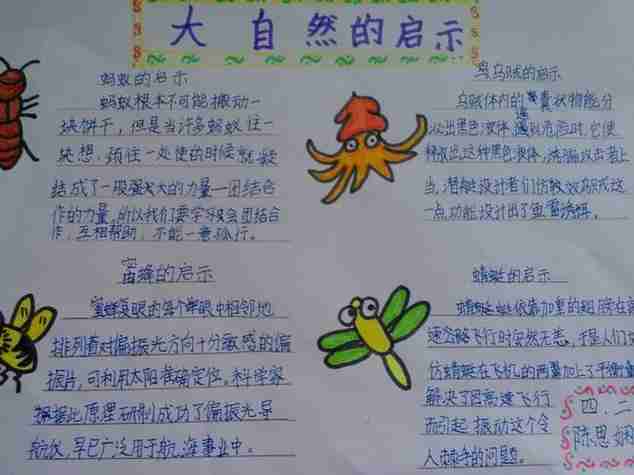 大自然的启示
蚂蚁的启示
蚂蚁根本不可能搬动一
块饼干，但是当许多蚂蚁往一
块想，须往一处使的时候就能
结成了一股强大的力量—团结合
作的力量，所以我们要学习会团结合
作，互相帮助，不能一意孤行。
乌贼的启示
乌贼体内的囊状物能分
以出黑色液体，遇到危险时，它便
释放出这种黑色液体，诱骗攻击者上
当，潜艇设计者们仿效乌贼这
一点功能设计出了鱼雷诱饵。
蜜蜂的启示
蜜蜂复眼的每个单眼中相邻地
排列着对偏振光方向十分敏感的偏
振片，可利用太阳准确定位。科学家
据此原理研制成功了偏振光导
航仪，早已广泛用于航海事业中。
蜻蜓的启示
蜻蜓依靠加重的翅膀在高
速飞行时安然无恙，于是人们
仿蜻蜓在飞机的两翼加上了平衡重
解决了因高速飞行
而引起振动这个令
人棘手的问题。
四.二
陈思娴